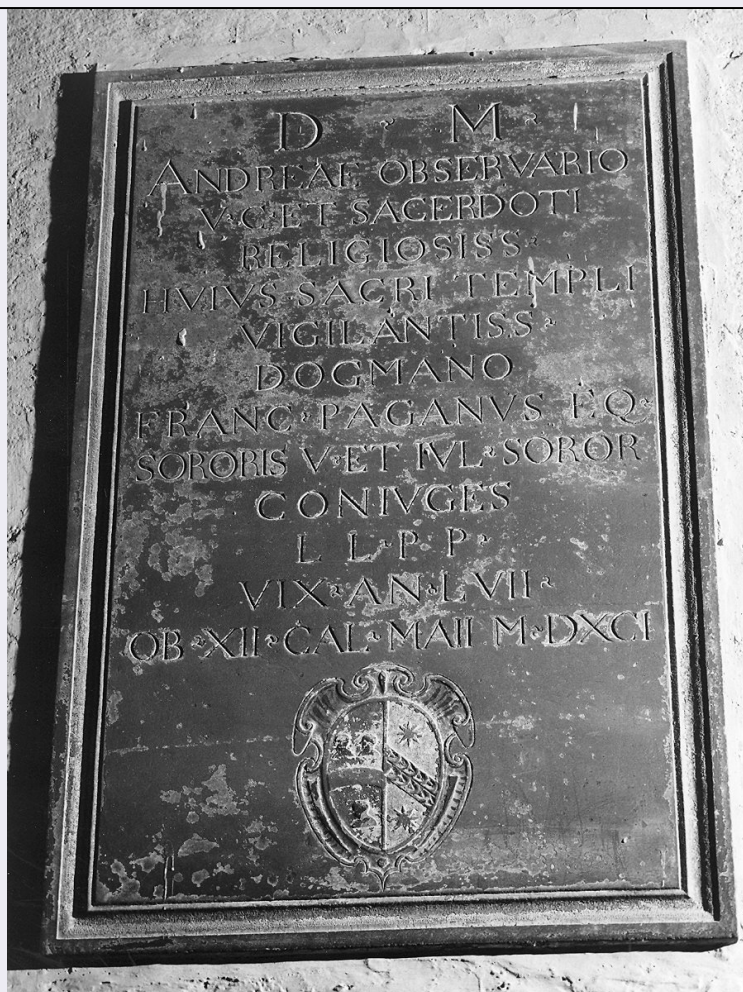 D · M ·
ANDREAE OBSERVARIO
V·C·ET SACERDOTI
RELIGIOSISS·
HVIVS SACRI TEMPLI
VIGILANTISS·
DOGMANO
FRANC·PAGANVS EQ·
SORORIS V·ET IVL·SOROR
CONIVGES
L L·P P·
VIX·AN·LVII·
OB·XII·CAL·MAII M·DXCI